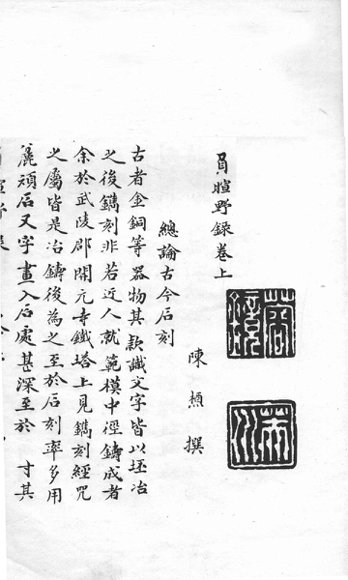 負暄野録卷上
陳槱 撰
總論古今石刻
古者金銅等器物其款識文字皆以坯冶
之後鐫刻非若近人就範模中徑鑄成者
余於武陵郡開元寺鐵塔上見鐫刻經咒
之屬皆是冶鑄後為之至於石刻率多用
麄頑石又字畫入石處甚深至於 寸其